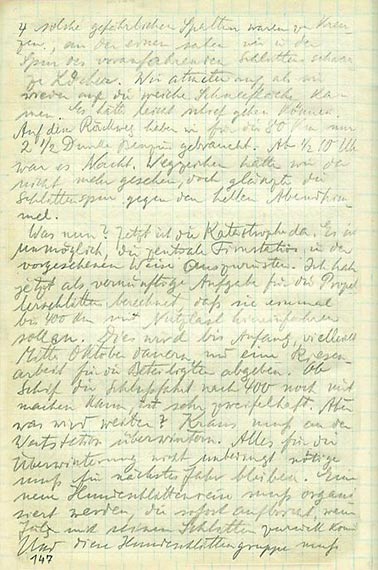 4 solche gefährlichen Spalten waren zu kreu-
zen, an der einen sahen wir in der
Spur des voranfahrenden Schlittens schwar-
ze Löcher. Wir atmeten auf als wir
wieder auf die weiche Schneefläche ka-
men. Es hätte leicht schief gehen können.
Auf dem Rückweg haben wir für die 80 km nur
2 1/2 Stunde Benzin gebraucht. Ab 1/2 10 Uhr
war es Nacht. Wegzeichen hätten wir da
nicht mehr gesehen, doch glänzte die
Schlittenspur gegen den hellen Abendhim-
mel.
Was nun? Jetzt ist die Katastrophe da. Es ist
unmöglich, die zentrale Firnstation in der
vorgesehenen Weise auszurüsten. Ich habe
jetzt als vernünftige Aufgabe für die Propel-
lerschlitten berechnet daß sie einmal
bis 400 km mit Nutzlast hineinfahren
sollen. Dies wird bis Anfang, vielleicht
Mitte Oktober dauern, und eine Riesen-
arbeit für die Beteiligten abgeben. Ob
Schif die Schlußfahrt nach 400 noch mit
machen kann, ist sehr zweifelhaft. Aber
was wird werden? Kraus muß an der
Weststation überwintern. Alles für die
Überwinterung nicht unbedingt nötige
muß für nächstes Jahr bleiben. Eine
neue Hundeschlittenreise muß organi
siert werden, die sofort aufbricht, wenn
Jülg mit seinen Schlitten zurück kommt
Und diese Hundeschlittengruppe muß
147